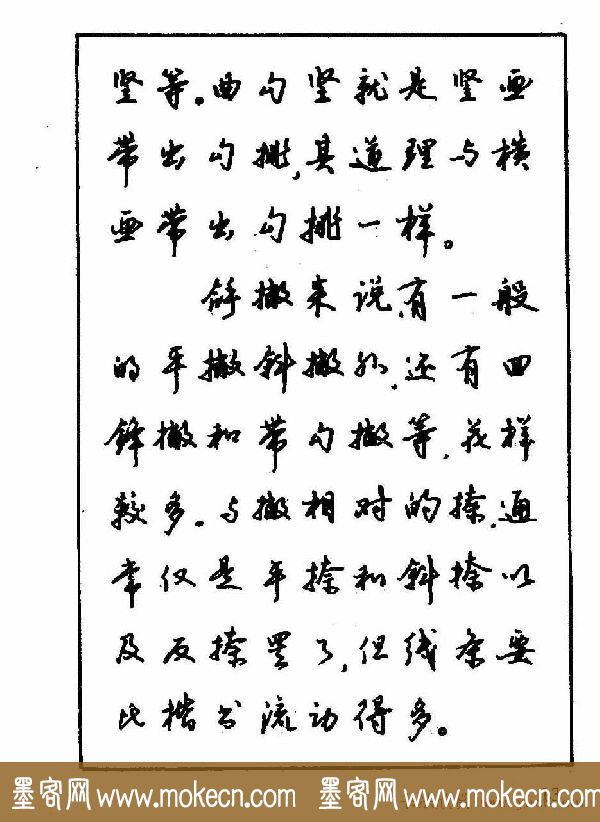 竖等。曲勾竖就是竖画
带出勾挑,其道理与横
画带出勾挑一样。
解撇来说,有一般
的平撇斜撇外,还有回
锋撇和带勾撇等,花样
较多。与撇相对的捺,通
常仅是平捺和斜捺以
及反捺罢了,但线条要
比楷书流动得多。
墨客网 www.mokecn.com 墨客网 www.mokecn.com